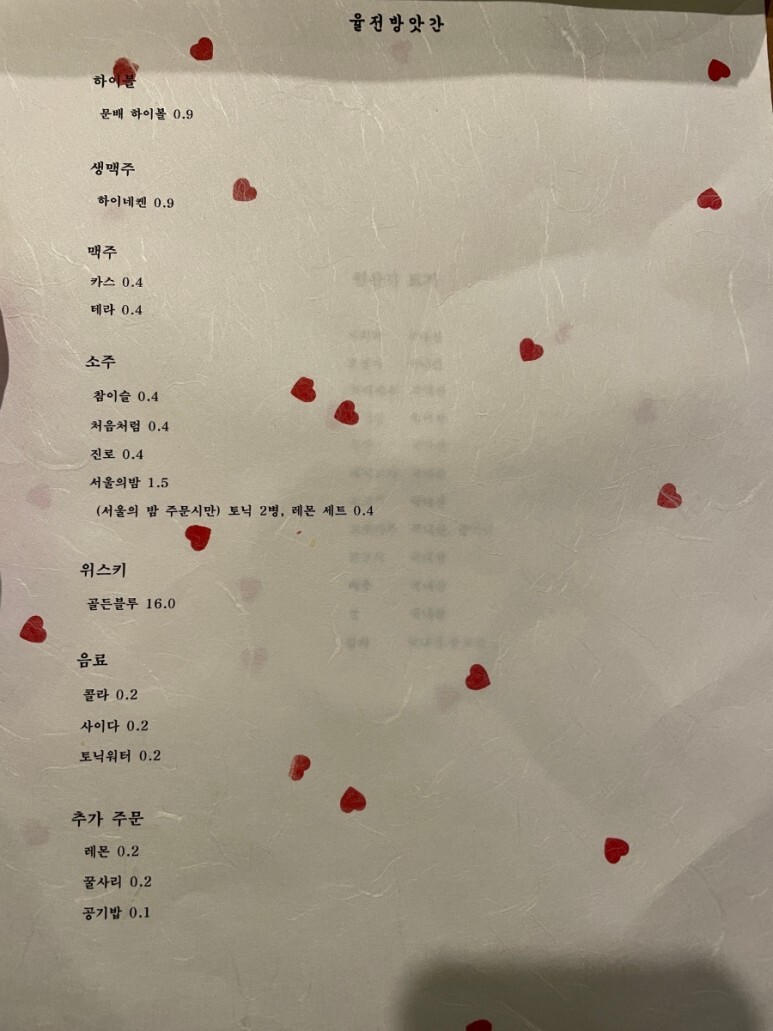 율전방앗간
하이볼
문배 하이볼 0.9
생맥주
하이네켄 0.9
맥주
카스 0.4
테라 0.4
소주
참이슬 0.4
처음처럼 0.4
진로 0.4
서울의밤 1.5
(서울의 밤 주문시만) 토닉 2병, 레몬 세트 0.4
위스키
골든블루 16.0
음료
콜라 0.2
사이다 0.2
토닉워터 0.2
추가 주문
레몬 0.2
꿀사리 0.2
공기밥 0.1